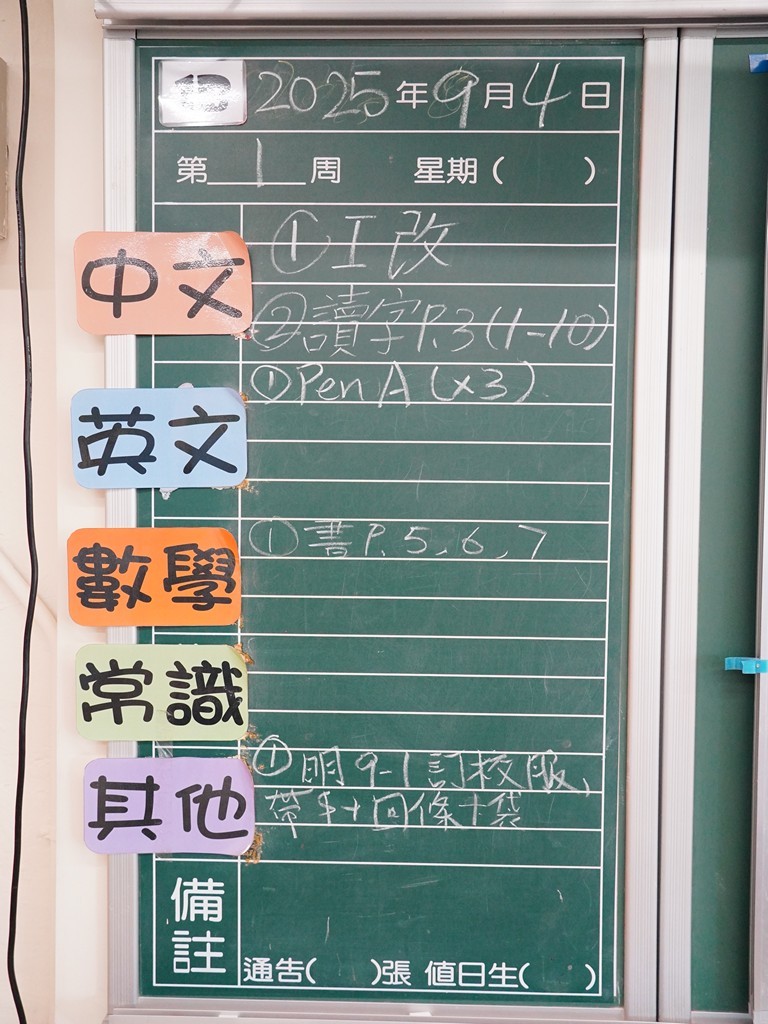 2025年9月4日
第1周 星期( )
中文
①工改
②讀字P.3(1-10)
英文
①Pen A (×3)
數學
①書P.5、6、7
常識
其他
①明9-1訂校服、
帶$+回條+袋
備註
通告( )張 值日生( )